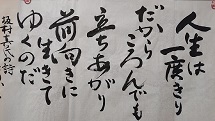 人生は
一度きり
だから
ころんでも
立ちあがり
前向きに
生きて
ゆくのだ
坂村真民の詩